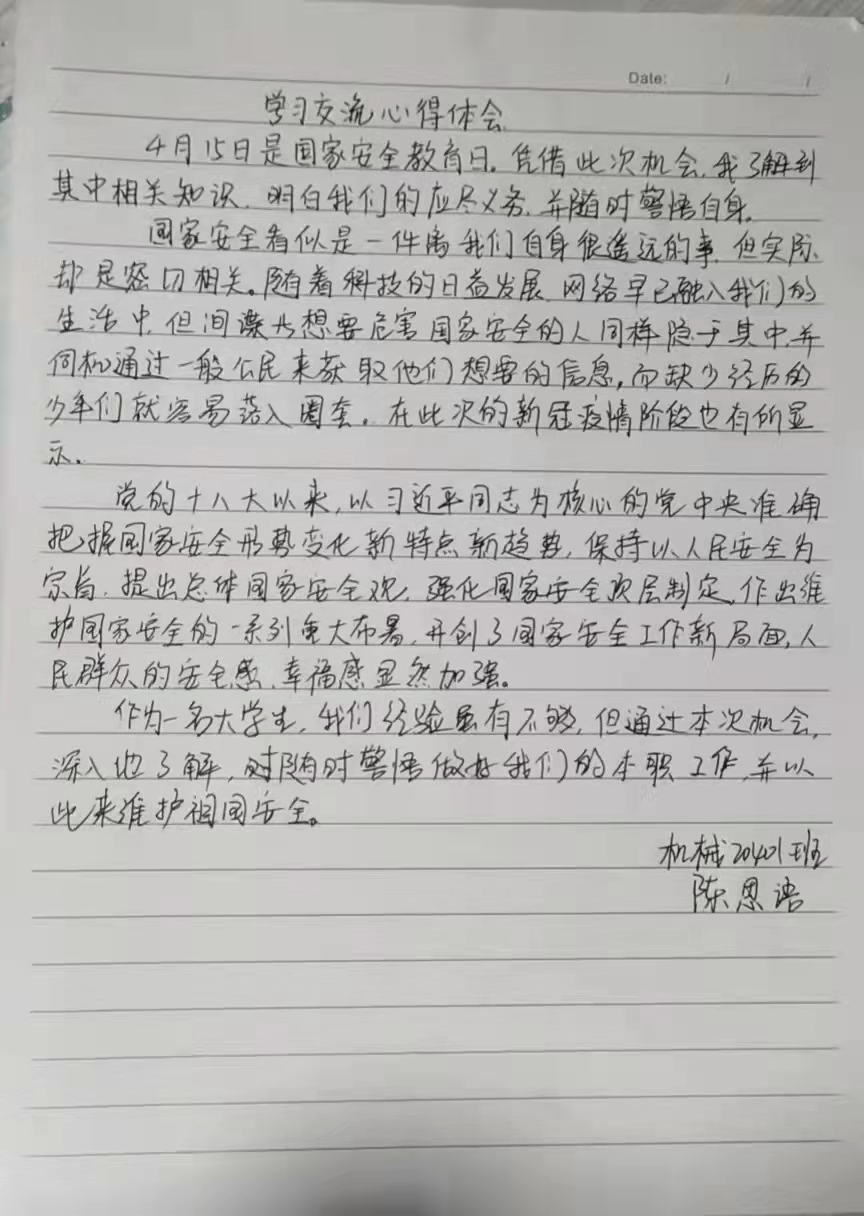 Date: / /
学习交流心得体会
4月15日是国家安全教育日。凭借此次机会,我了解到
其中相关知识,明白我们的应尽义务,并随时警悟自身。
国家安全看似是一件离我们自身很遥远的事,但实际
却是密切相关。随着科技的日益发展,网络早已融入我们的
生活中,但间谍此想要危害国家安全的人同样隐于其中,并
伺机通过一般公民来获取他们想要的信息,而缺少经历的
少年们就容易落入圈套。在此次的新冠疫情阶段也有所显
示。
党的十八大以来,以习近平同志为核心的党中央准确
把握国家安全形势变化新特点新趋势,保持以人民安全为
宗旨,提出总体国家安全观,强化国家安全顶层制定,作出维
护国家安全的一系列重大布署,开创了国家安全工作新局面,人
民群众的安全感、幸福感显然加强。
作为一名大学生,我们经验虽有不够,但通过本次机会,
深入地了解,时随时警悟做好我们的本职工作,并以
此来维护祖国安全。
机械20401班
陈思语